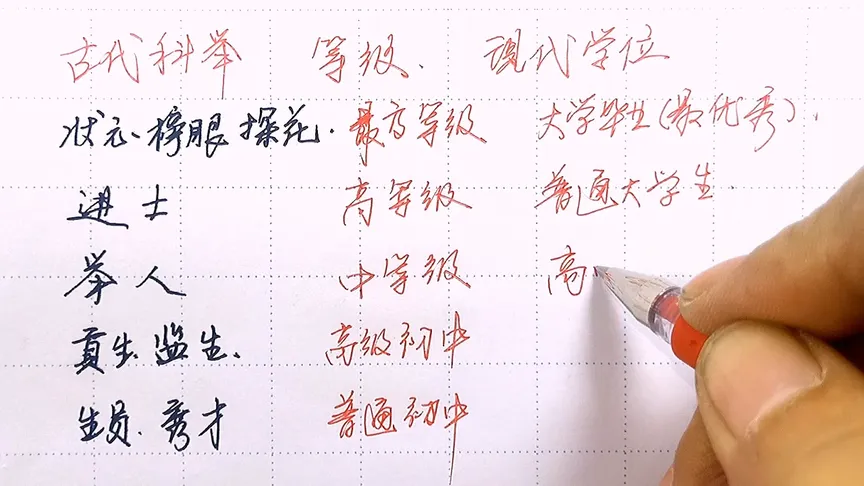 古代科举 等级、 现代学位
状元、榜眼 探花. 最高等级 大学毕业(最优秀).
进士 高等级 普通大学生
举人 中等级 高
贡生、监生、 高级初中
生员、秀才 普通初中